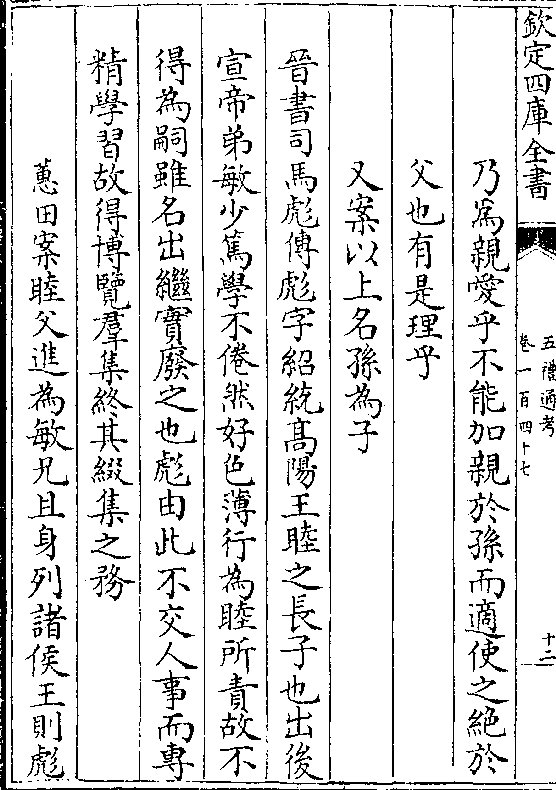 欽定四庫全書
五禮通考
卷一百四十七
十二
乃為親愛乎不能加親於孫而適使之絕於
父也有是理乎
又案以上名孫為子
晉書司馬彪傳彪字紹統髙陽王睦之長子也出後
宣帝弟敏少篤學不倦然好色薄行為睦所責故不
得為嗣雖名出繼實廢之也彪由此不交人事而專
精學習故得博覽羣集終其綴集之務
蕙田案睦父進為敏兄且身列諸侯王則彪